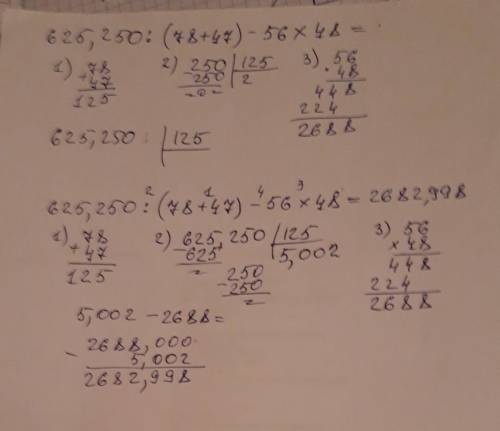 625,250:(78+47)-56×48=
1) 78 2) 250 125 3) 56
+47 -250 2 ×48
125 =0= 448
224
2688
625,250: 125
2 1 4 3
625,250:(78+47)-56×48=2682,998
1) 78 2) 625,250 125 3) 56
+47 -625 5,002 ×48
125 = 250 448
-250 224
= 2688
5,002-2688=
2688,000
- 5,002
2682,998